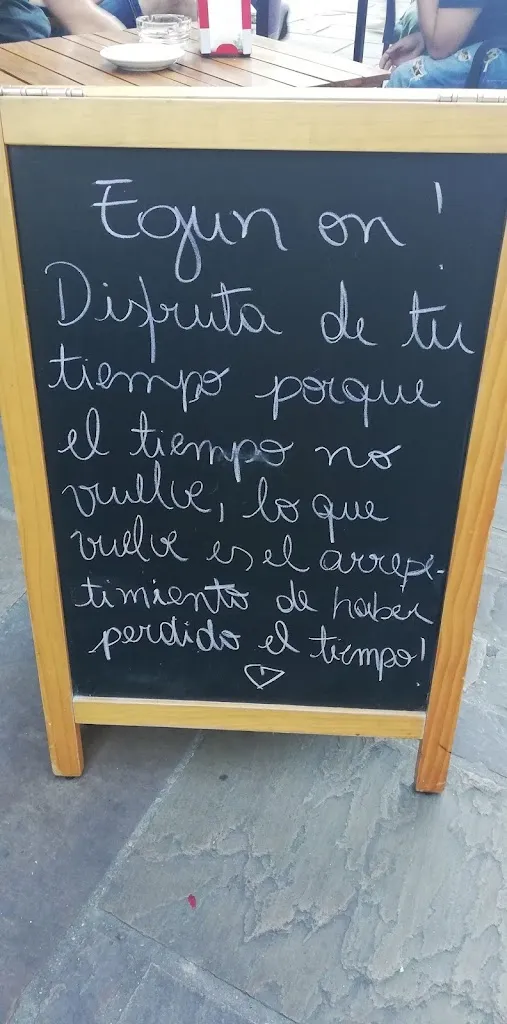 Egun on!
Disfruta de tu
tiempo porque
el tiempo no
vuelve, lo que
vuelve es el arrepi-
timiento de haber
perdido el tiempo!